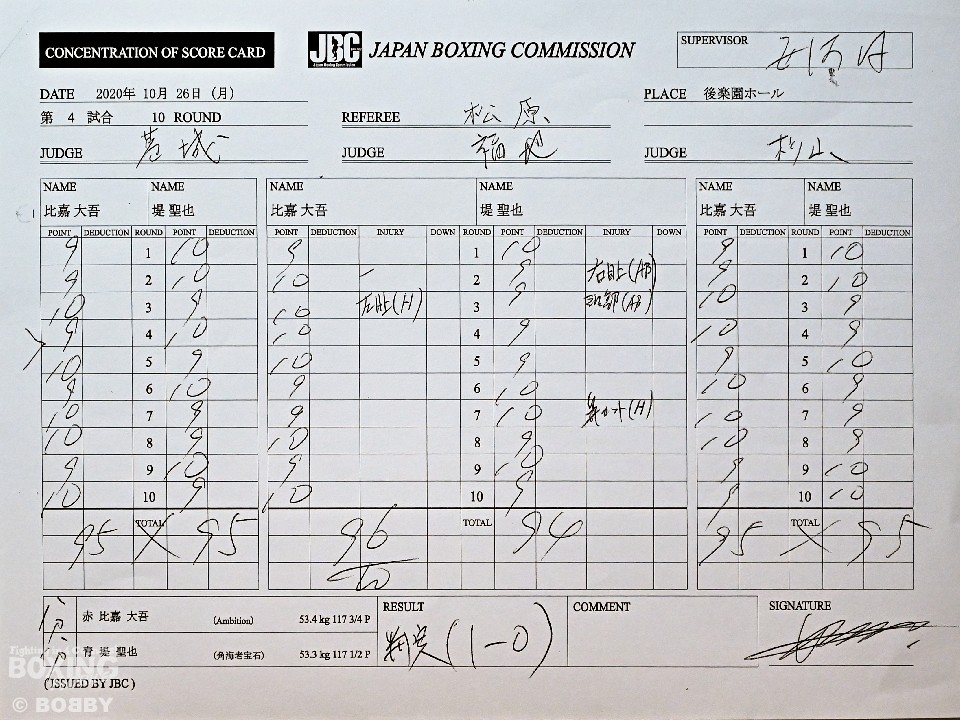 CONCENTRATION OF SCORE CARD
JBC JAPAN BOXING COMMISSION
SUPERVISOR
DATE 2020年 10月 26日 (月)
PLACE 後楽園ホール
第 4 試合 10 ROUND
REFEREE 松原
JUDGE 葛城
JUDGE 福地
JUDGE 杉山
NAME NAME NAME NAME NAME NAME
比嘉 大吾 堤 聖也 比嘉 大吾 堤 聖也 比嘉 大吾 堤 聖也
POINT DEDUCTION ROUND POINT DEDUCTION POINT DEDUCTION INJURY DOWN ROUND POINT DEDUCTION INJURY DOWN POINT DEDUCTION ROUND POINT DEDUCTION
9 1 10 9 1 10 9 1 10
9 2 10 10 2 9 右目上(AB) 9 2 10
10 3 9 10 左目上(H) 3 9 頭部(AB) 10 3 9
9 4 10 10 4 9 10 4 9
10 5 9 10 5 9 9 5 10
9 6 10 9 6 10 10 6 9
10 7 9 9 7 10 (H) 10 7 9
10 8 9 10 8 9 10 8 9
9 9 10 9 9 10 9 9 10
10 10 9 10 10 9 9 10 10
95 TOTAL 95 96 TOTAL 94 95 TOTAL 95
分 赤 比嘉 大吾 (Ambition) 53.4 kg 117 3/4 P
分 青 堤 聖也 (角海老宝石) 53.3 kg 117 1/2 P
RESULT
判定 (1-0)
COMMENT
SIGNATURE
(ISSUED BY JBC)
BOXING
© BOBBY